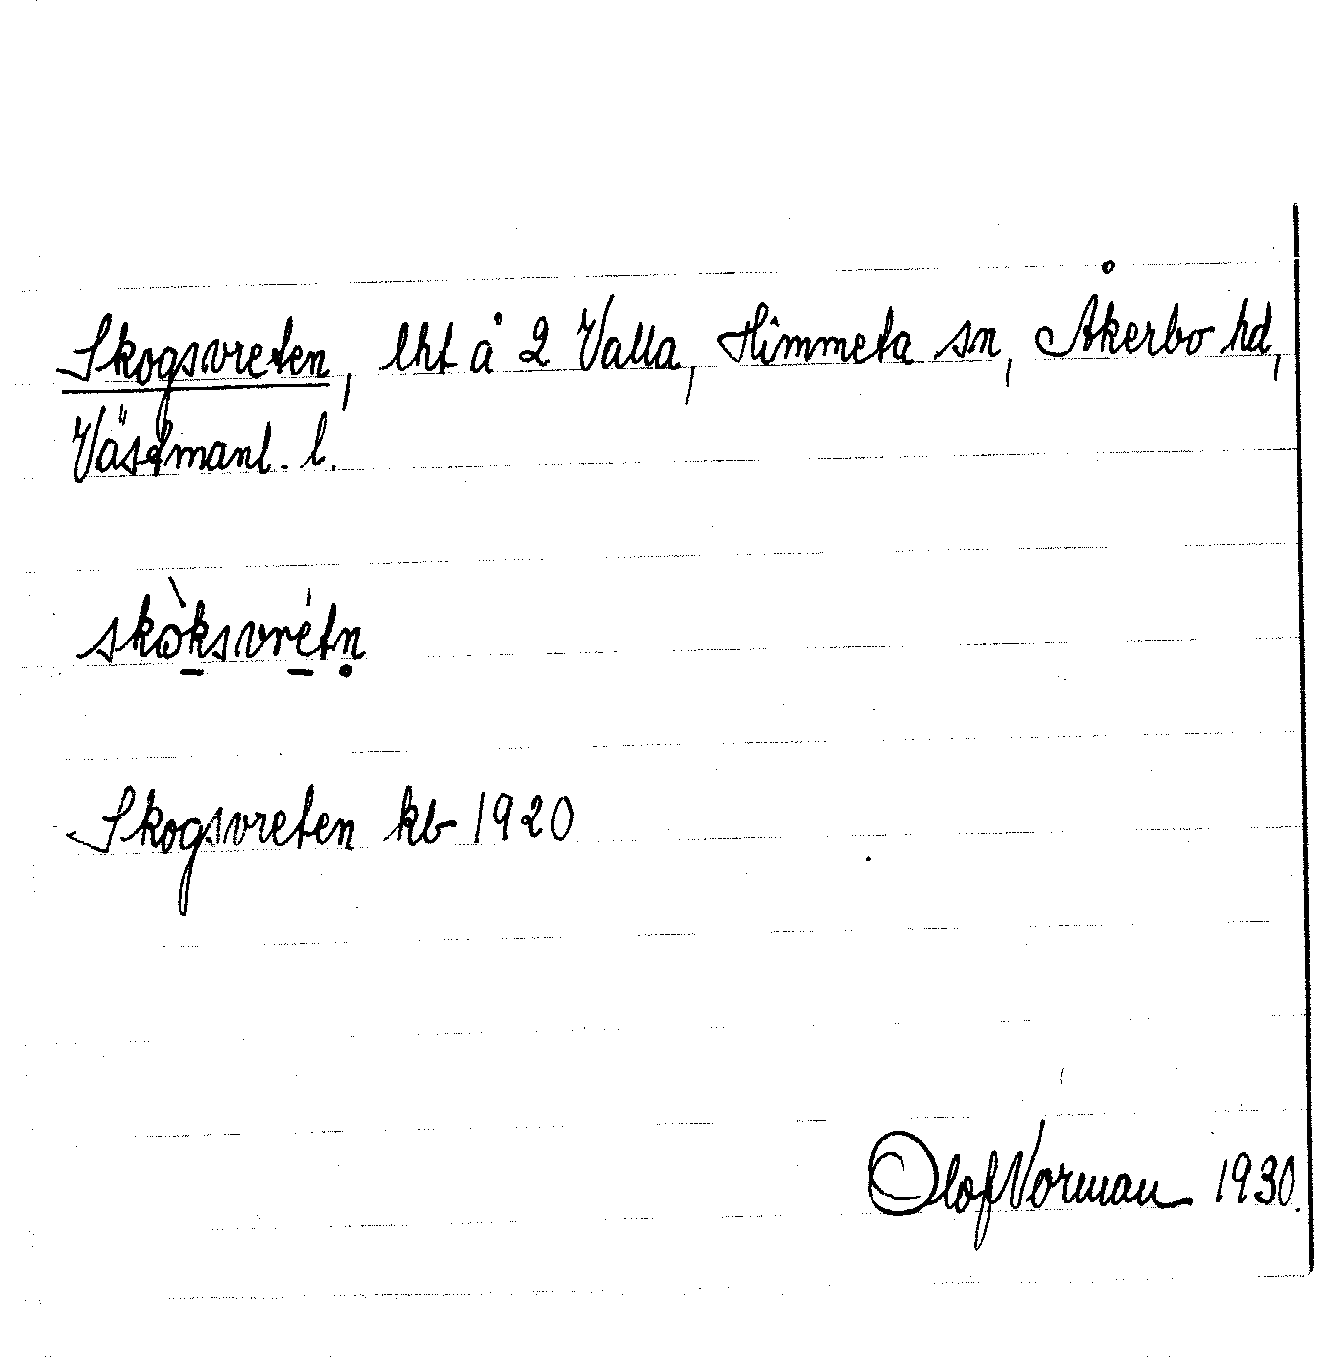 Skogsvreten, lht å 2 Valla, Himmeta sn, Åkerbo hd,
Västmanl. l.
skòksvrétn
Skogsvreten kb 1920
Olof Norman 1930.